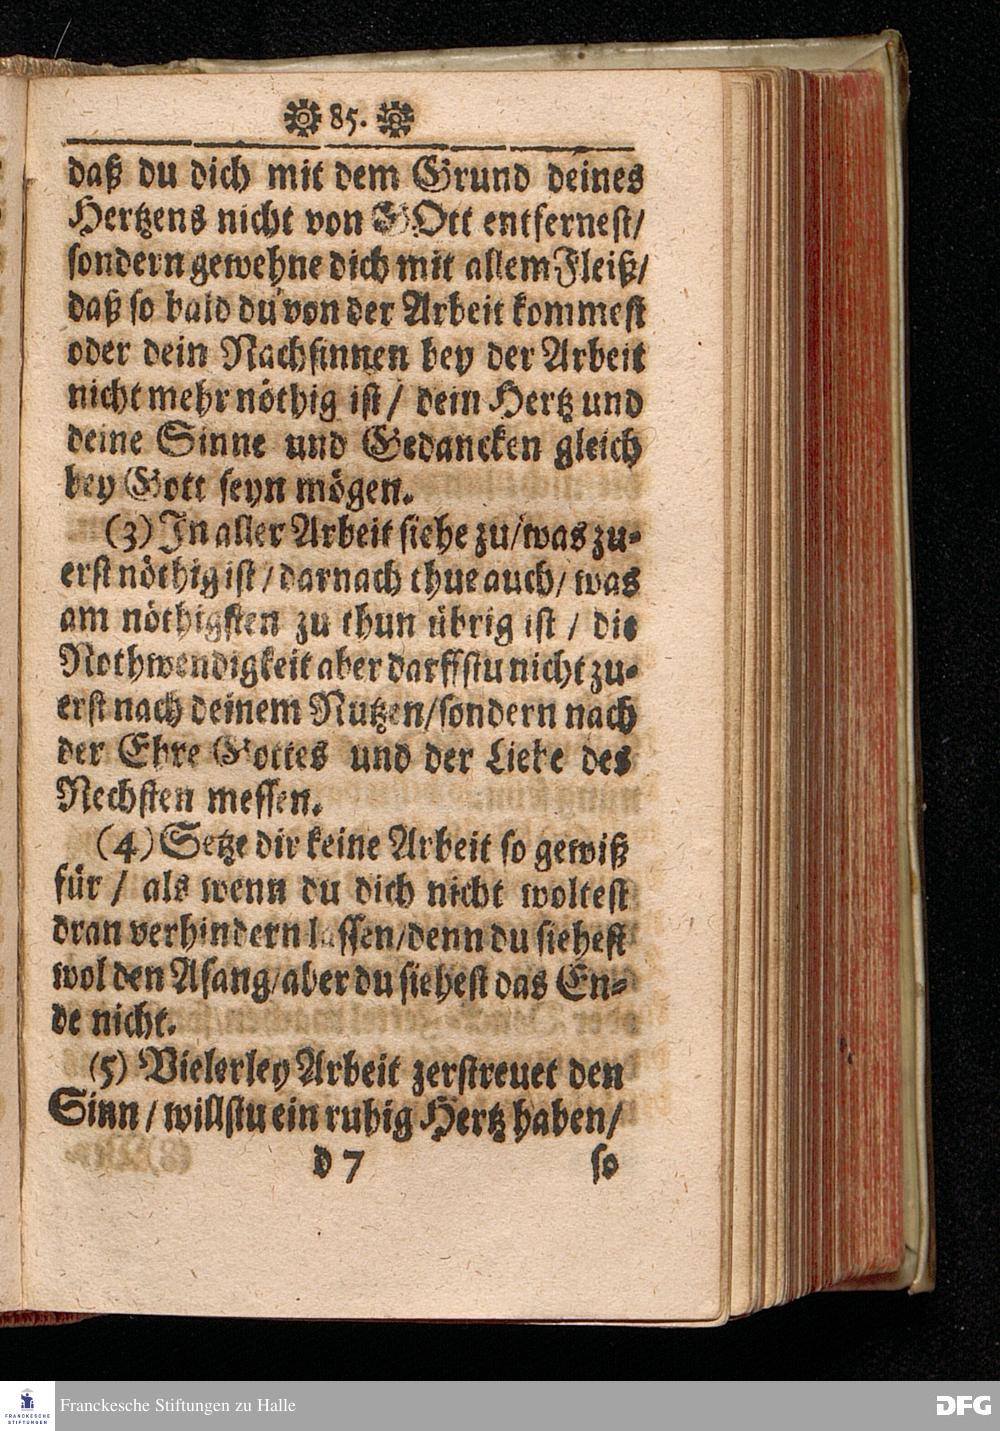 85.
daß du dich mit dem Grund deines
Hertzens nicht von GOtt entfernest/
sondern gewehne dich mit allem Fleiß/
daß so bald du von der Arbeit kommest
oder dein Nachsinnen bey der Arbeit
nicht mehr nöthig ist / dein Hertz und
deine Sinne und Gedancken gleich
bey Gott seyn mögen.
(3) In aller Arbeit siehe zu/was zu-
erst nöthig ist / darnach thue auch/ was
am nöthigsten zu thun übrig ist / die
Nothwendigkeit aber darffstu nicht zu-
erst nach deinem Nutzen/sondern nach
der Ehre Gottes und der Liebe des
Nechsten messen.
(4) Setze dir keine Arbeit so gewiß
für / als wenn du dich nicht woltest
dran verhindern lassen/denn du siehest
wol den Afang/aber du siehest das En-
de nicht.
(5) Vielerley Arbeit zerstreuet den
Sinn / willstu ein ruhig Hertz haben/
d 7 so
FRANCKESCHE STIFTUNGEN
Franckesche Stiftungen zu Halle
DFG